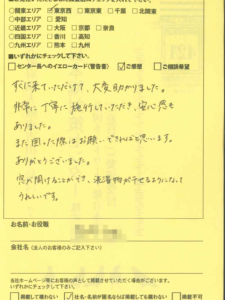 ○関東エリア ☑東京西 □東京東 □千葉 □北関東
○中部エリア □愛知
○近畿エリア □大阪 □京都 □奈良
○四国エリア □香川 □高知
○九州エリア □熊本 □九州
■いずれかにチェックして下さい。
□センター長へのイエローカード(警告書) ☑ご感想 □ご相談希望
すぐに来ていただけて、大変助かりました。
非常に丁寧に施行していただき、安心感も
ありました。
また困った際はお願いできればと思います。
ありがとうございました。
窓が開けることができ、洗濯物が干せるようになって
うれしいです。
お名前・お役職
会社名(法人のお客様のみご記入下さい)
当社ホームページ等にお客様の声として掲載させていただく場合がございます。
いずれかにチェックして下さい。
□掲載して構わない ☑社名・名前が匿名ならば掲載しても構わない □掲載不可